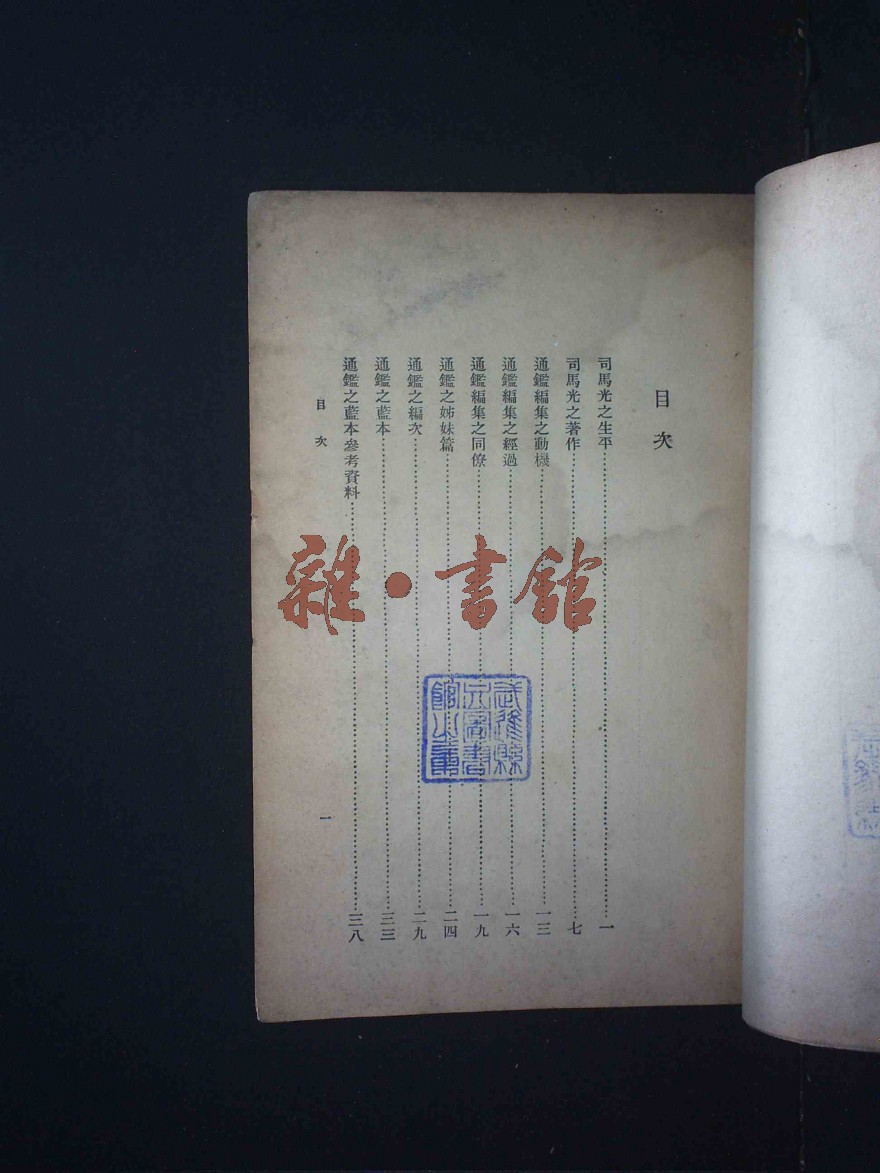 目次
司馬光之生平 一
司馬光之著作 七
通鑑編集之動機 一三
通鑑編集之經過 一六
通鑑編集之同僚 一九
通鑑之姊妹篇 二四
通鑑之編次 二九
通鑑之藍本 三三
通鑑之藍本參考資料 三八
目次 一
雜·書館
武進縣
立圖書
館之章